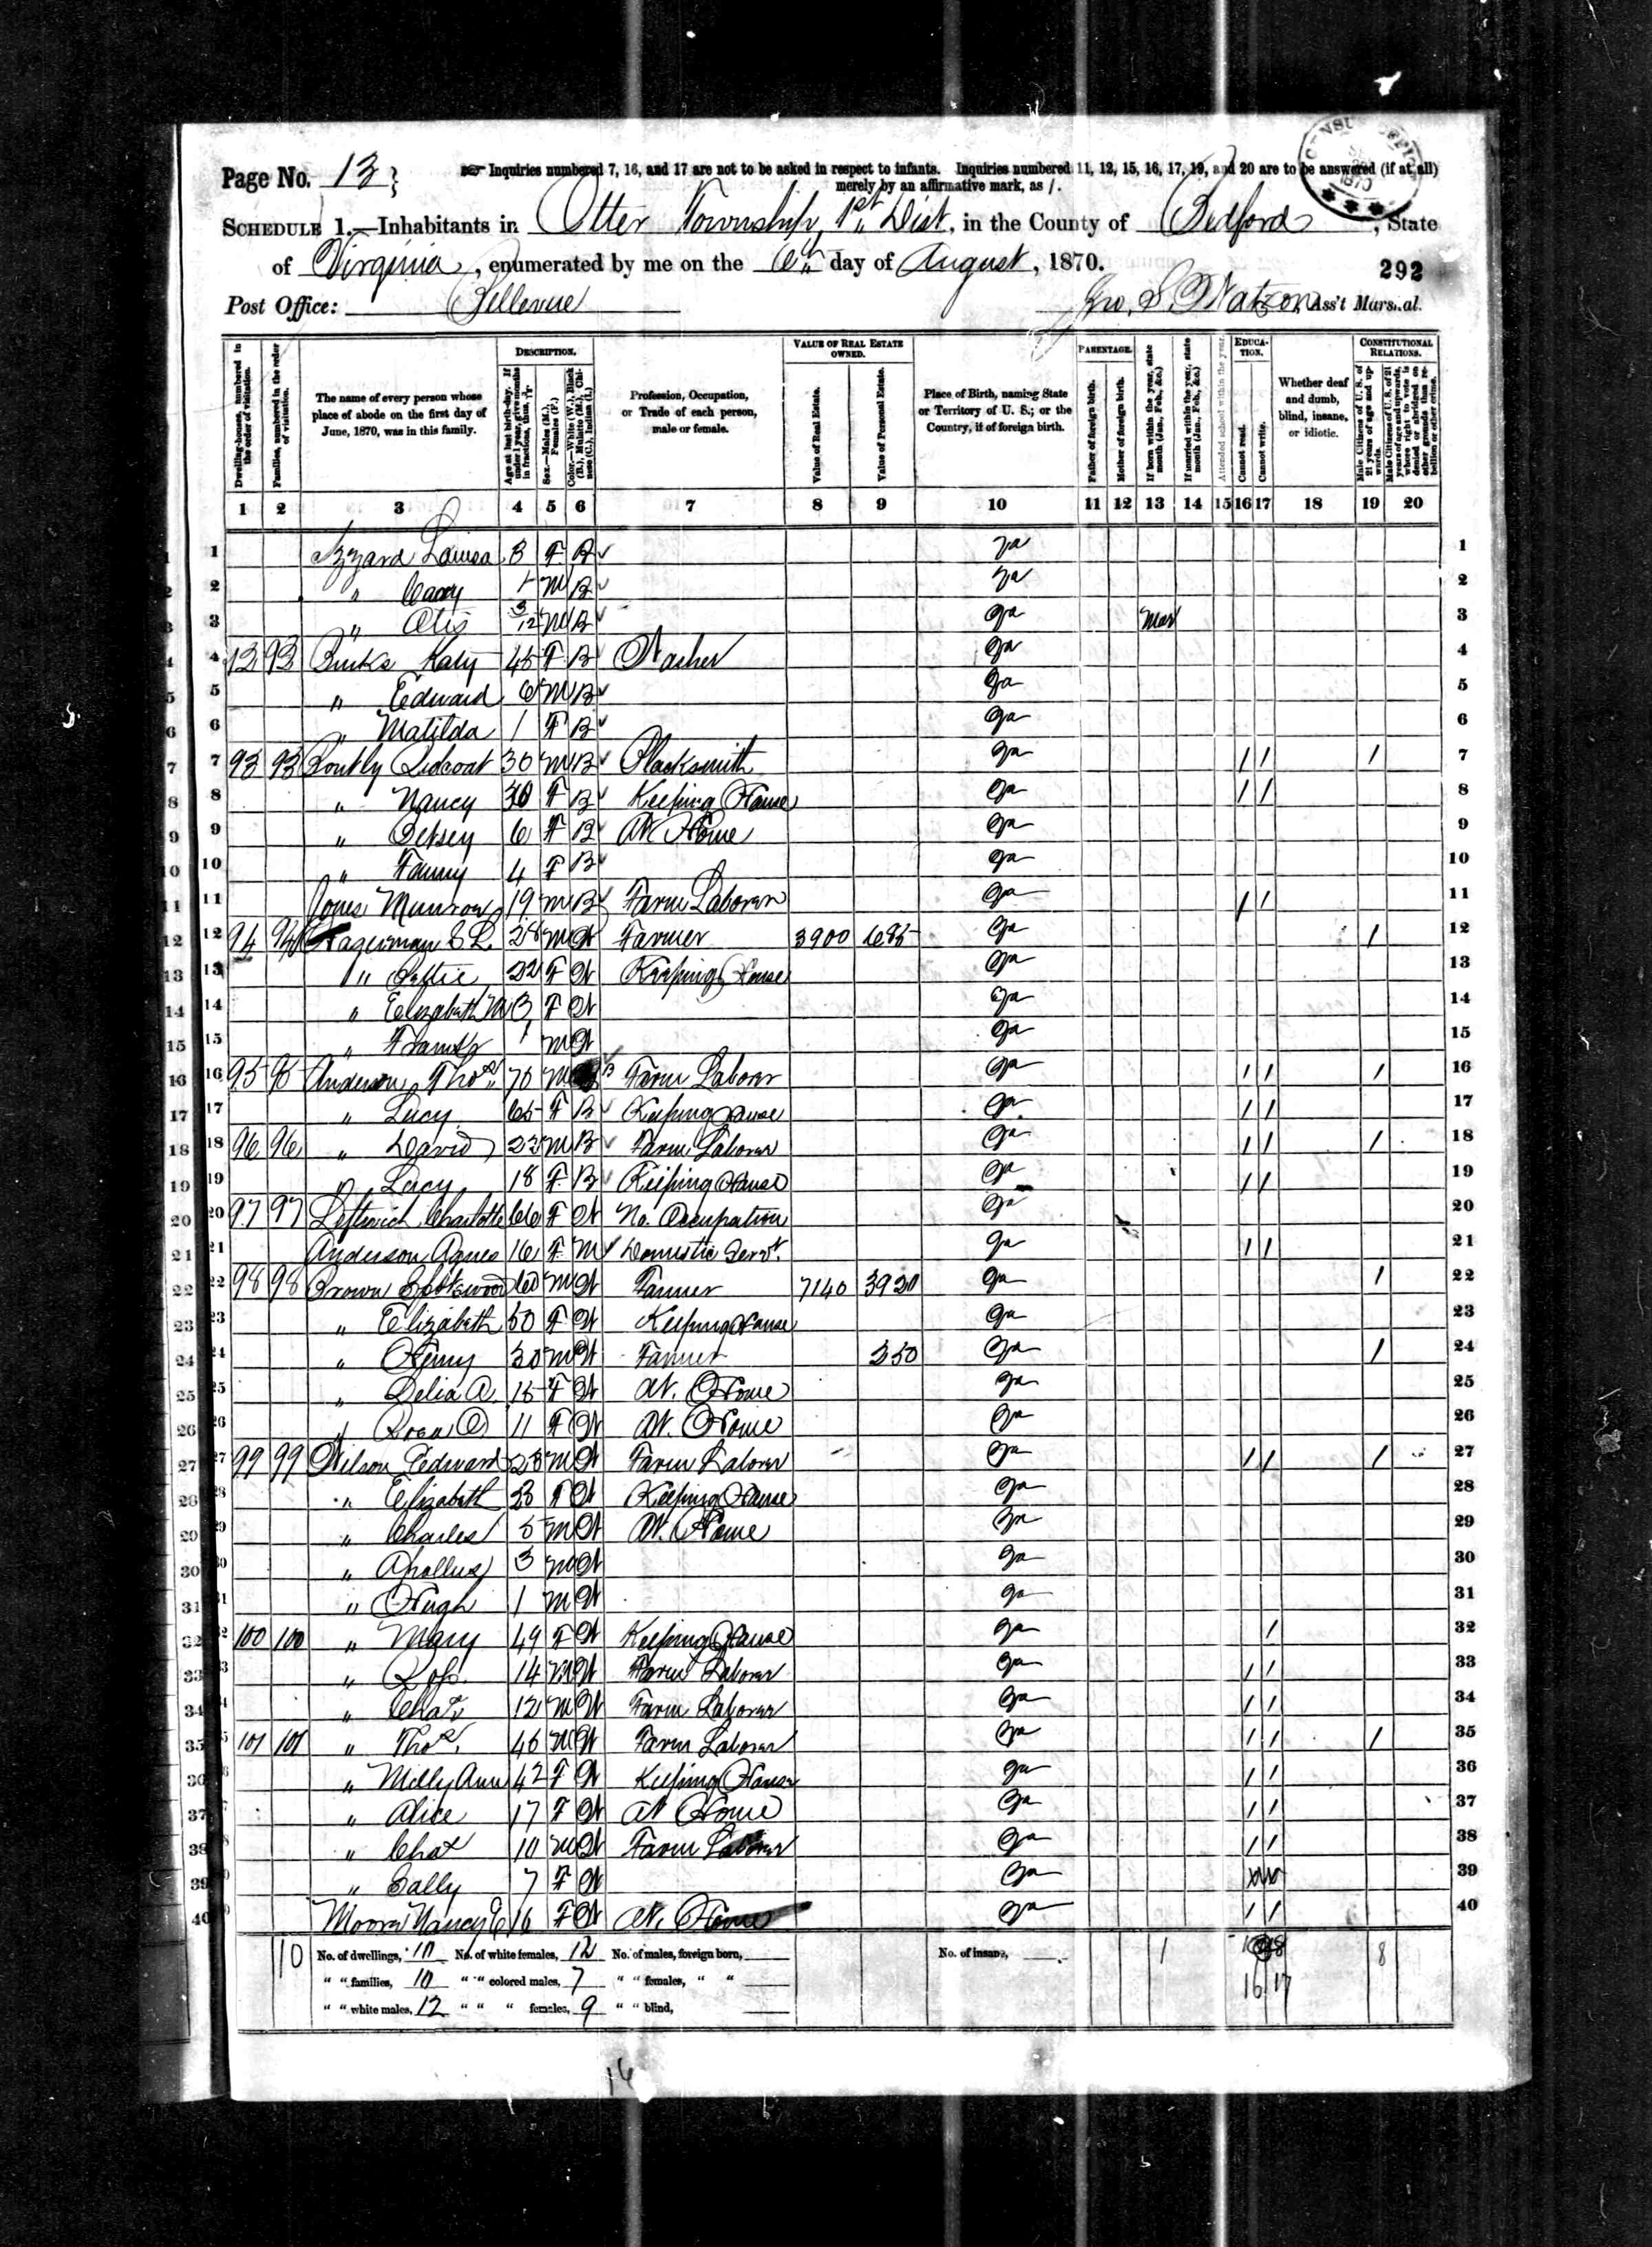 Page No. 13
Inquiries numbered 7, 16, and 17 are not to be asked in respect to infants. Inquiries numbered 11, 12, 15, 16, 17, 19, and 20 are to be answered (if at all)
merely by an affirmative mark, as /.
SCHEDULE 1.—Inhabitants in Otter Township, 1st Dist, in the County of Bedford, State
of Virginia, enumerated by me on the 6th day of August, 1870.
292
Post Office: Bellevue
Jno. S. Watson, Ass't Marshal.
Dwelling-houses, numbered in the order of visitation.
Families, numbered in the order of visitation.
The name of every person whose place of abode on the first day of June, 1870, was in this family.
DESCRIPTION.
Age at last birth-day. If under 1 year, give months in fractions, thus,
Sex.—Males (M.), Females (F.)
Color.—White (W.), Black (B.), Mulatto (M.), Chinese (C.), Indian (I.)
Profession, Occupation, or Trade of each person, male or female.
VALUE OF REAL ESTATE OWNED.
Value of Real Estate.
Value of Personal Estate.
Place of Birth, naming State or Territory of U. S.; or the Country, if of foreign birth.
PARENTAGE.
Father of foreign birth.
Mother of foreign birth.
If born within the year, state month (Jan., Feb., &c.)
If married within the year, state month (Jan., Feb., &c.)
Attended school within the year.
EDUCATION.
Cannot read.
Cannot write.
Whether deaf and dumb, blind, insane, or idiotic.
CONSTITUTIONAL RELATIONS.
Male Citizens of U. S. of 21 years of age and upwards.
Male Citizens of U. S. of 21 years of age and upwards, where right to vote is denied or abridged on other grounds than rebellion or other crime.
1 2 3 4 5 6 7 8 9 10 11 12 13 14 15 16 17 18 19 20
1 Louisa 3 F B Va 1
2 " M B Va 2
3 " Otis 3/12 M B Va Mar 3
4 93 Burks Katy 45 F B Washer Va 4
5 " Edward 6 M B Va 5
6 " Matilda 1 F B Va 6
7 93 93 30 M B Blacksmith Va / / / 7
8 " Nancy 30 F B Keeping House Va / / 8
9 " Betsey 6 F B At Home Va 9
10 " Fanny 4 F B Va 10
11 Jones Munroe 19 M B Farm Laborer Va / / 11
12 94 94 28 M W Farmer 3900 685 Va / 12
13 " 22 F W Keeping House Va 13
14 " Elizabeth M 3 F W Va 14
15 " 1 M W Va 15
16 95 95 Anderson Thos 70 M B Farm Laborer Va / / / 16
17 " Lucy 65 F B Keeping House Va / / 17
18 96 96 " David 23 M B Farm Laborer Va / / / 18
19 " Lucy 18 F B Keeping House Va / / 19
20 97 97 Leftwich Charlotte 66 F W No. Occupation Va 20
21 Anderson Agnes 16 F M Domestic Serv't Va / / 21
22 98 98 Brown Spotswood 60 M W Farmer 7140 3920 Va / 22
23 " Elizabeth 50 F W Keeping House Va 23
24 " Henry 30 M W Farmer 350 Va / 24
25 " Delia A. 15 F W At. Home Va 25
26 " Rosa 11 F W At. Home Va 26
27 99 99 Wilson Edward 28 M W Farm Laborer Va / / / 27
28 " Elizabeth 28 F W Keeping House Va 28
29 " Charles 5 M W At. Home Va 29
30 " Apollus 3 M W Va 30
31 " Hugh 1 M W Va 31
32 100 100 " Mary 49 F W Keeping House Va / 32
33 " Rob. 14 M W Farm Laborer Va / / 33
34 " Chas 12 M W Farm Laborer Va / / 34
35 101 101 " Thos. 45 M W Farm Laborer Va / / / 35
36 " Milly Ann 42 F W Keeping House Va / / 36
37 " Alice 17 F W At Home Va / / 37
38 " Chas 10 M W Farm Laborer Va / / 38
39 " Sally 7 F W Va 39
40 Moore Nancy E 16 F W At. Home Va / / 40
10 No. of dwellings, 10 No. of white females, 12 No. of males, foreign born, No. of insane, 1 8
" " families, 10 " " colored males, 7 " " females, " " 16 17
" " white males, 12 " " " females, 9 " " blind,